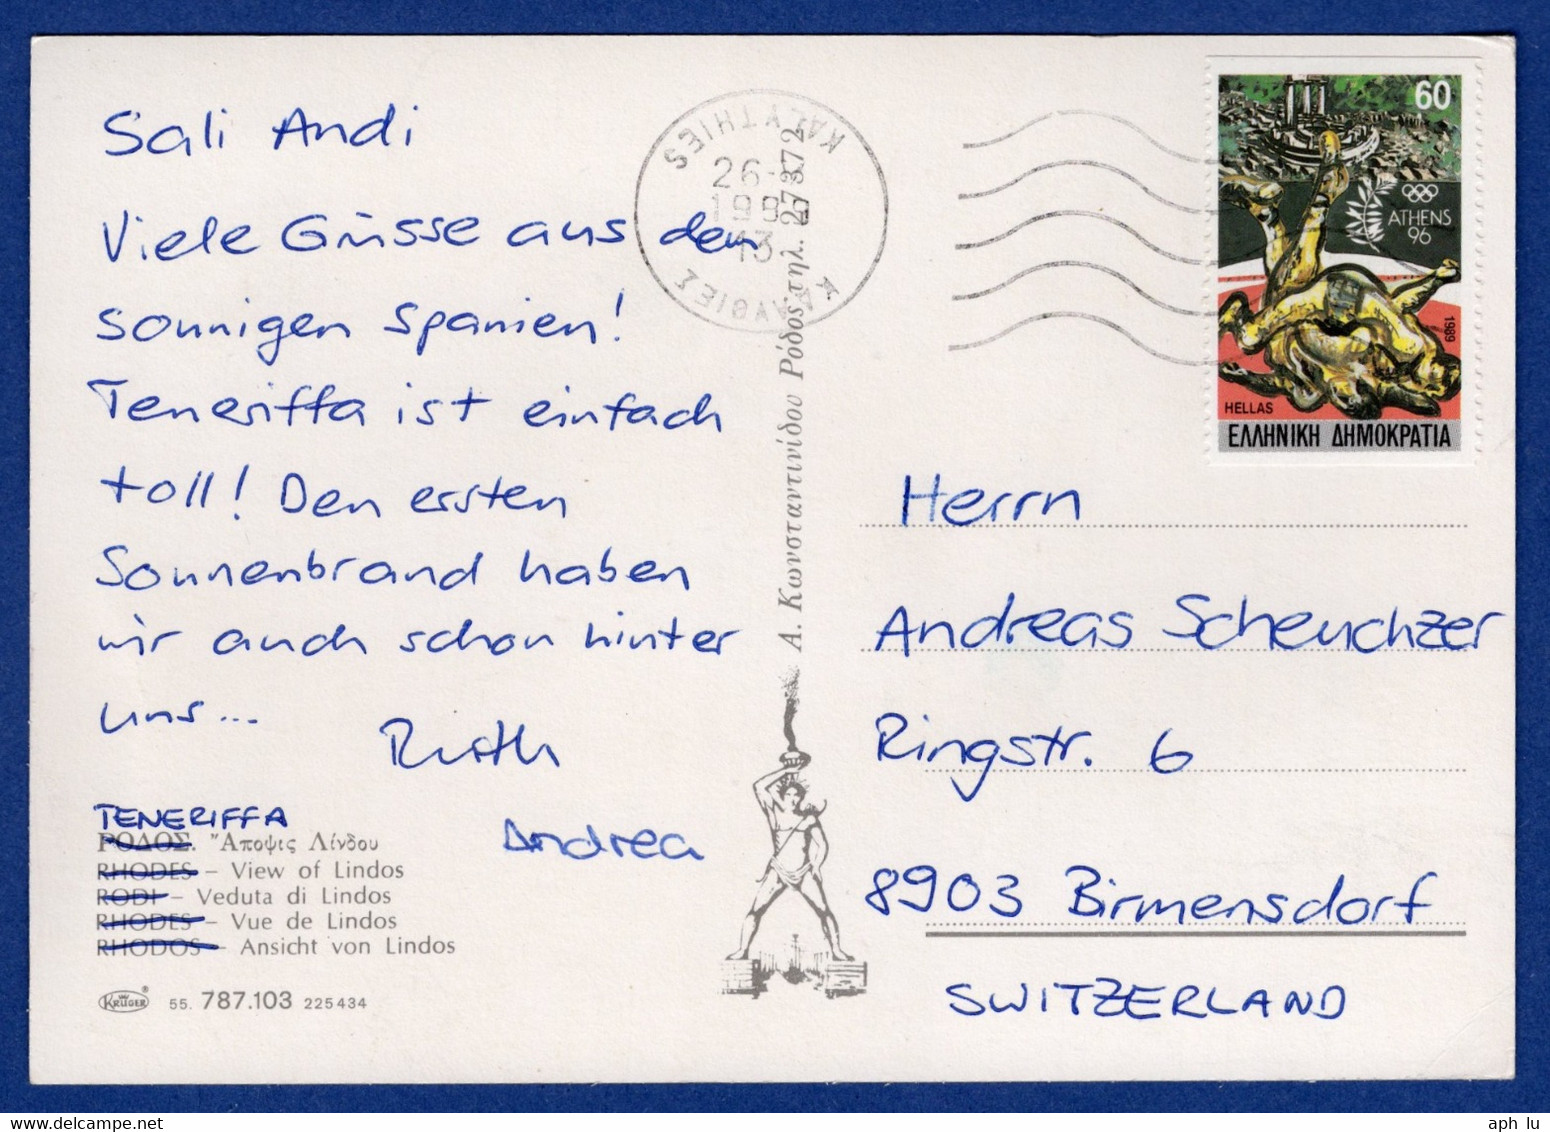 Sali Andi
Viele Grüsse aus dem
sonnigen Spanien!
Teneriffa ist einfach
toll! Den ersten
Sonnenbrand haben
wir auch schon hinter
uns...
Ruth
Andrea
TENERIFFA
ΡΟΔΟΣ. "Αποψις Λίνδου
RHODES – View of Lindos
RODI – Veduta di Lindos
RHODES – Vue de Lindos
RHODOS – Ansicht von Lindos
KRÜGER ® 55. 787.103 225434
Α. Κωνσταντινίδου Ρόδος τηλ. 27372
KALYTHIES
26
13
ΚΑΛΥΘΙΕΣ
60
ATHENS
96
1989
HELLAS
ΕΛΛΗΝΙΚΗ ΔΗΜΟΚΡΑΤΙΑ
Herrn
Andreas Scheuchzer
Ringstr. 6
8903 Birmensdorf
SWITZERLAND
aph lu